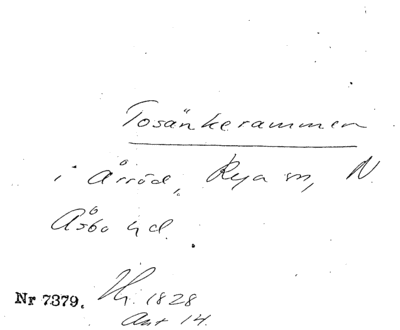 Tosänkerammen
i Årröd, Rya sn, N.
Åsbo hd.
Nr 7379. Hr. 1828
Ant 14.